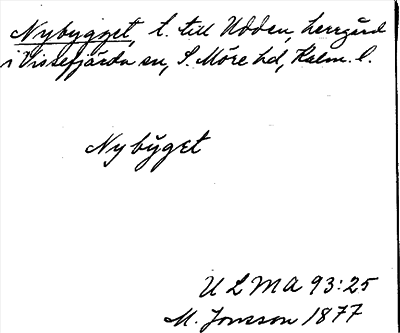 Nybygget, t. till Udden, herrgård
i Vissefjärda sn, S. Möre hd, Kalm. l.
Nybyget
ULMA 93:25
M. Jonsson 1877